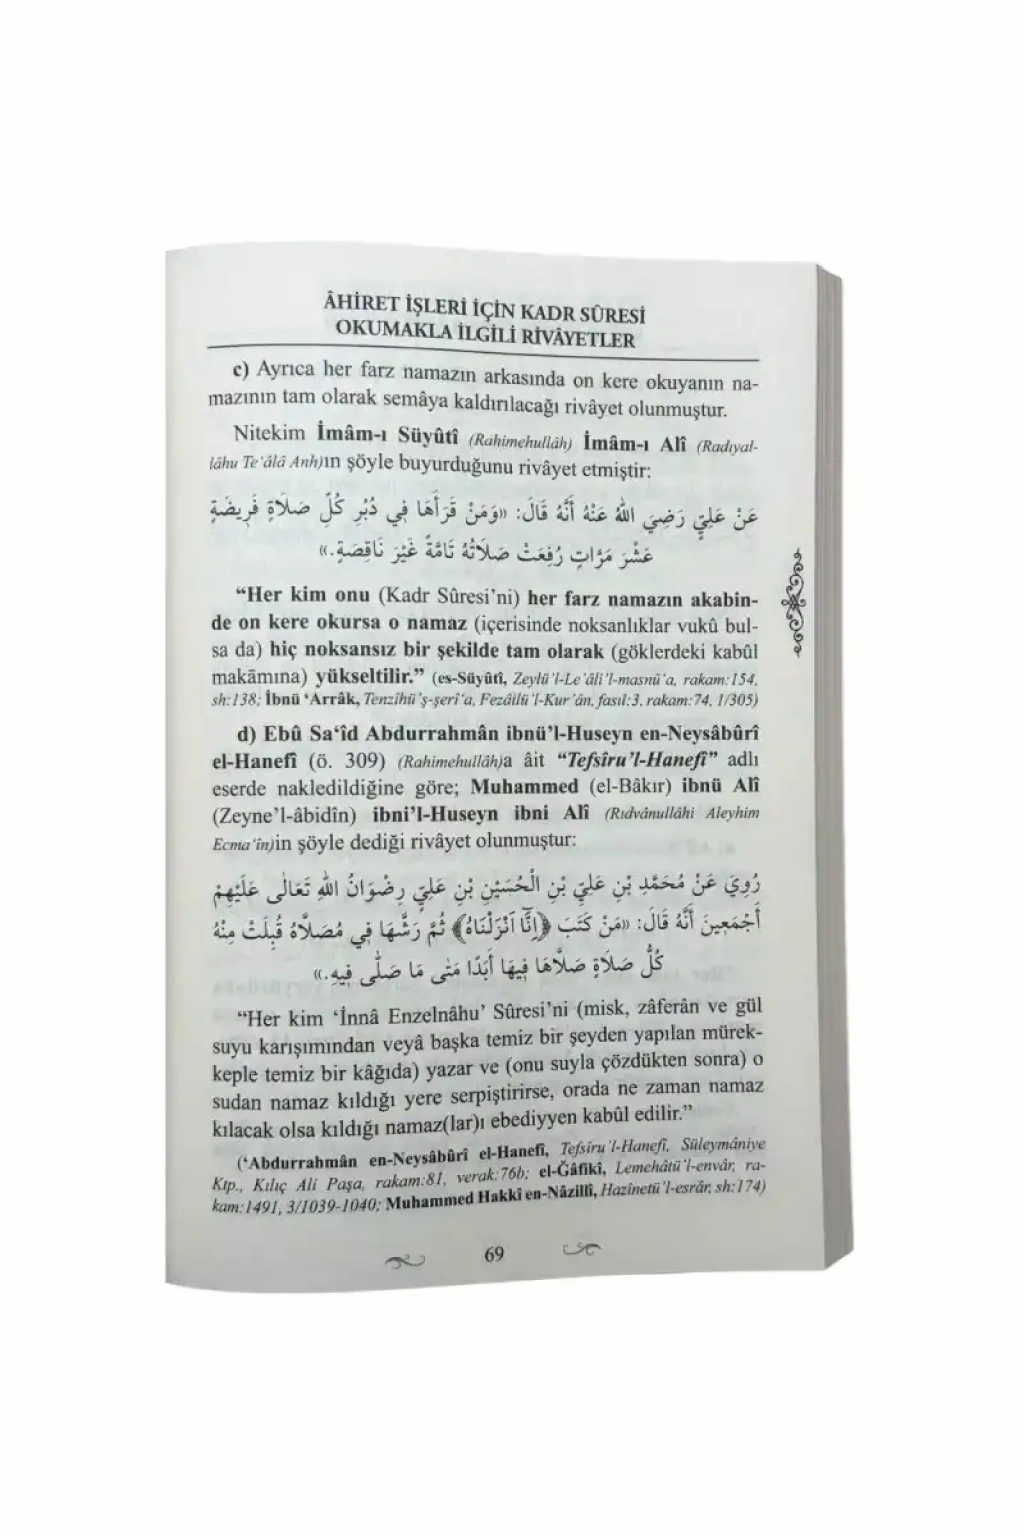 ÂHİRET İŞLERİ İÇİN KADR SÛRESİ
OKUMAKLA İLGİLİ RİVÂYETLER
c) Ayrıca her farz namazın arkasında on kere okuyanın na-
mazının tam olarak semâya kaldırılacağı rivâyet olunmuştur.
Nitekim İmâm-ı Süyûtî (Rahimehullâh) İmâm-ı Alî (Radıyal-
lâhu Te‘âlâ Anh)ın şöyle buyurduğunu rivâyet etmiştir:
عَنْ عَلِيٍّ رَضِيَ اللهُ عَنْهُ أَنَّهُ قَالَ: «وَمَنْ قَرَأَهَا فِي دُبُرِ كُلِّ صَلَاةٍ فَرِيضَةٍ
عَشْرَ مَرَّاتٍ رُفِعَتْ صَلَاتُهُ تَامَّةً غَيْرَ نَاقِصَةٍ.»
“Her kim onu (Kadr Sûresi’ni) her farz namazın akabin-
de on kere okursa o namaz (içerisinde noksanlıklar vukû bul-
sa da) hiç noksansız bir şekilde tam olarak (göklerdeki kabûl
makāmına) yükseltilir.” (es-Süyûtî, Zeylü’l-Le’âli’l-masnû‘a, rakam:154,
sh:138; İbnü ‘Arrâk, Tenzîhü’ş-şerî‘a, Fezâilü’l-Kur’ân, fasıl:3, rakam:74, 1/305)
d) Ebû Sa‘îd Abdurrahmân ibnü’l-Huseyn en-Neysâbûrî
el-Hanefî (ö. 309) (Rahimehullâh)a âit “Tefsîru’l-Hanefî” adlı
eserde nakledildiğine göre; Muhammed (el-Bâkır) ibnü Alî
(Zeyne’l-âbidîn) ibni’l-Huseyn ibni Alî (Rıdvânullâhi Aleyhim
Ecma‘în)in şöyle dediği rivâyet olunmuştur:
رُوِيَ عَنْ مُحَمَّدِ بْنِ عَلِيِّ بْنِ الْحُسَيْنِ بْنِ عَلِيٍّ رِضْوَانُ اللهِ تَعَالَى عَلَيْهِمْ
أَجْمَعِينَ أَنَّهُ قَالَ: «مَنْ كَتَبَ ﴿اِنَّٓا اَنْزَلْنَاهُ﴾ ثُمَّ رَشَّهَا فِي مُصَلَّاهُ قُبِلَتْ مِنْهُ
كُلُّ صَلَاةٍ صَلَّاهَا فِيهَا أَبَدًا مَتَى مَا صَلَّى فِيهِ.»
“Her kim ‘İnnâ Enzelnâhu’ Sûresi’ni (misk, zâferân ve gül
suyu karışımından veyâ başka temiz bir şeyden yapılan mürek-
keple temiz bir kâğıda) yazar ve (onu suyla çözdükten sonra) o
sudan namaz kıldığı yere serpiştirirse, orada ne zaman namaz
kılacak olsa kıldığı namaz(lar)ı ebediyyen kabûl edilir.”
(‘Abdurrahmân en-Neysâbûrî el-Hanefî, Tefsîru’l-Hanefî, Süleymâniye
Ktp., Kılıç Ali Paşa, rakam:81, verak:76b; el-Ğâfikî, Lemehâtü’l-envâr, ra-
kam:1491, 3/1039-1040; Muhammed Hakkî en-Nâzillî, Hazînetü’l-esrâr, sh:174)
69